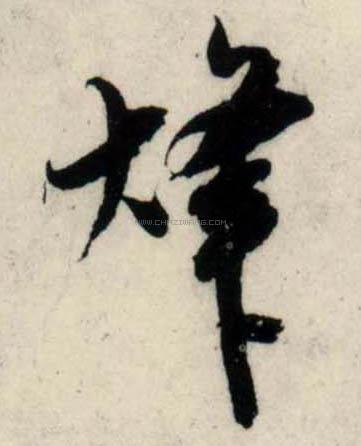 烽
WWW.CHAZIWANG.COM